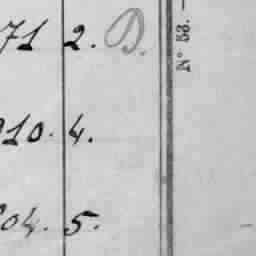 71 2. D.
10. 4.
04. 5.
N° 53. —